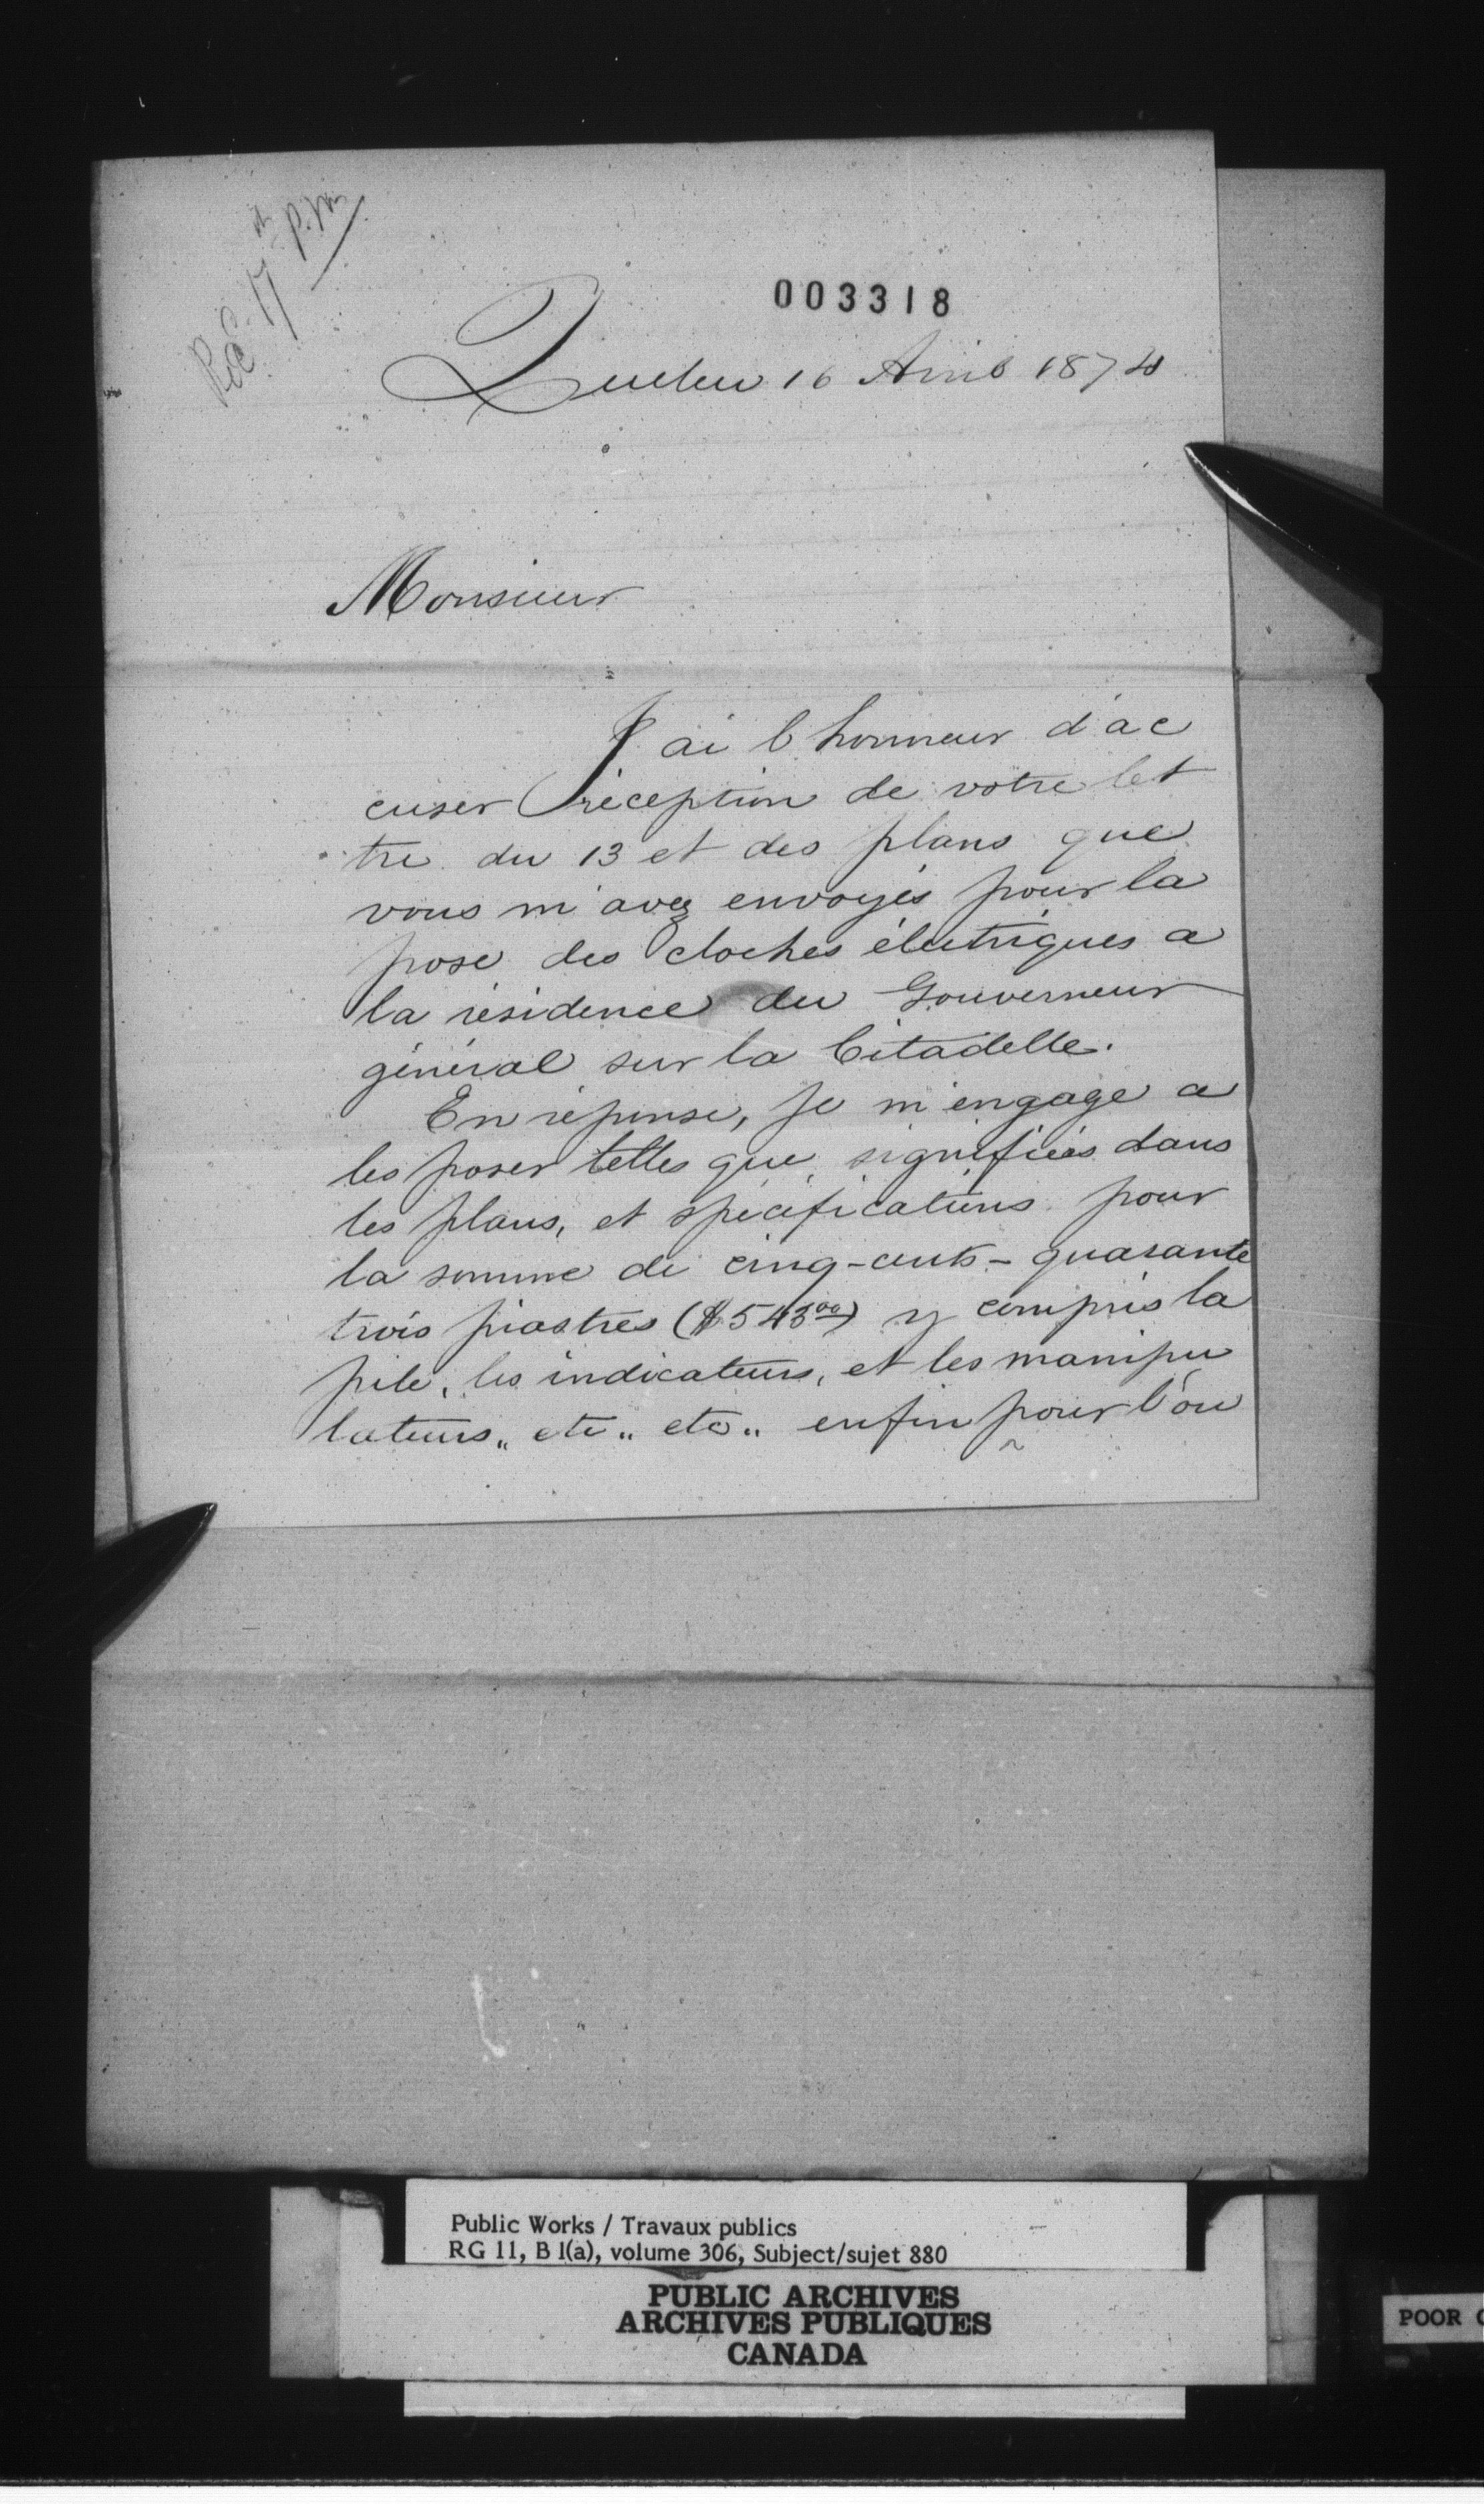 Rec 17th p.m
003318
Quebec 16 Avril 1874
Monsieur
J'ai l'honneur d'ac
cuser réception de votre let
tre du 13 et des plans que
vous m'avez envoyés pour la
pose des cloches électriques a
la résidence du Gouverneur
général sur la Citadelle.
En réponse, je m'engage a
les poser telles que signifiées dans
les plans, et spécifications pour
la somme de cinq-cents-quarante
trois piastres ($543.00) y compris la
pile, les indicateurs, et les manipu
lateurs,, etc,, etc,, enfin pour l'ou
Public Works / Travaux publics
RG 11, B 1(a), volume 306, Subject/sujet 880
PUBLIC ARCHIVES
ARCHIVES PUBLIQUES
CANADA
POOR